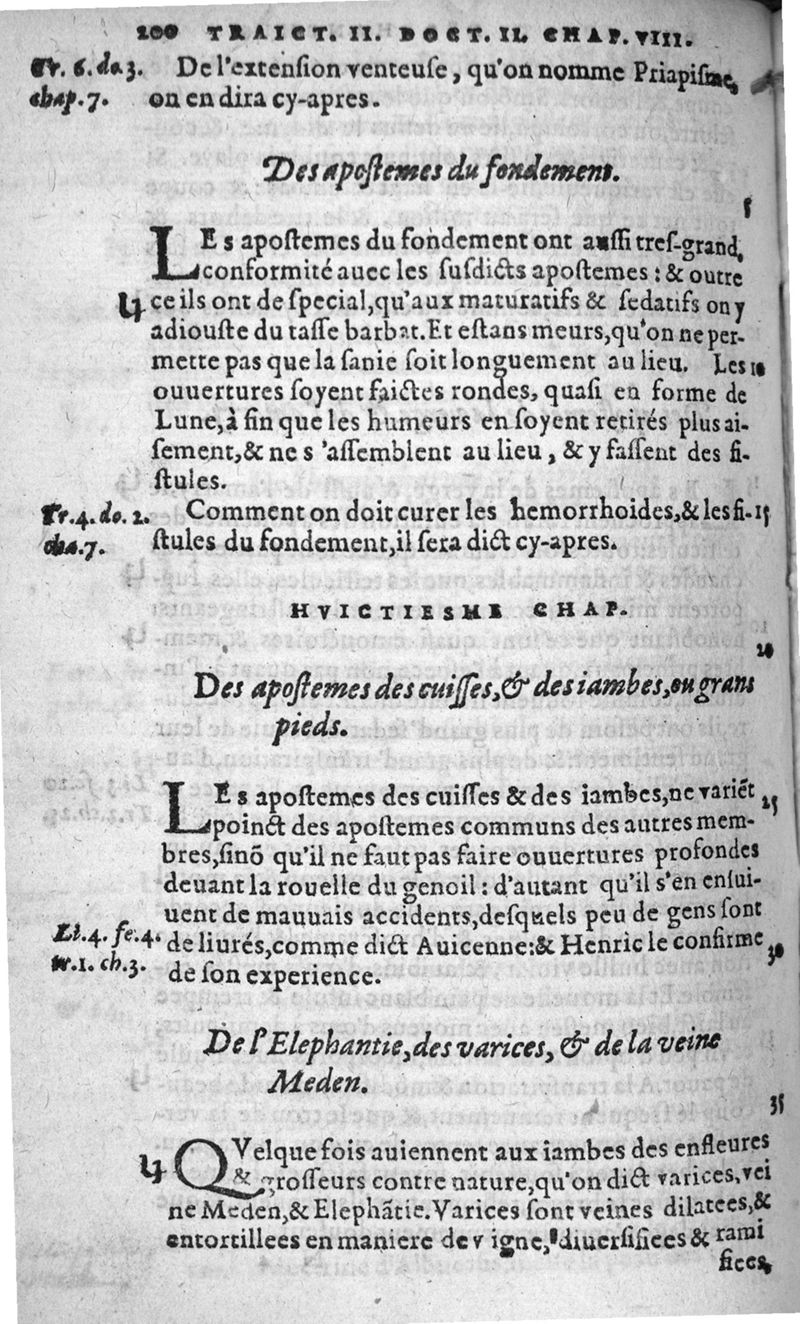 200 TRAICT. II. DOCT. II. CHAP. VIII.
Tr. 6. do. 3.
chap. 7.
De l'extenſion venteuſe, qu'on nomme Priapiſme,
on en dira cy-apres.
Des apoſtemes du fondement.
5
LEs apoſtemes du fondement ont auſſi treſ-grand,
conformité auec les ſuſdicts apoſtemes: & outre
ce ils ont de ſpecial, qu'aux maturatifs & ſedatifs on y
adiouſte du taſſe barbat. Et eſtans meurs, qu'on ne per-
mette pas que la ſanie ſoit longuement au lieu. Les 10
ouuertures ſoyent faictes rondes, quaſi en forme de
Lune, à fin que les humeurs en ſoyent retirés plus ai-
ſement, & ne s'aſſemblent au lieu, & y faſſent des fi-
ſtules.
Tr. 4. do. 2.
cha. 7.
Comment on doit curer les hemorrhoides, & les fi- 15
ſtules du fondement, il ſera dict cy-apres.
HVICTIESME CHAP.
20
Des apoſtemes des cuiſſes, & des iambes, ou grans
pieds.
LEs apoſtemes des cuiſſes & des iambes, ne variẽt 25
poinct des apoſtemes communs des autres mem-
bres, ſinõ qu'il ne faut pas faire ouuertures profondes
deuant la rouelle du genoil: d'autant qu'il s'en enſui-
uent de mauuais accidents, deſquels peu de gens ſont
Li. 4. fe. 4.
tr. 1. ch. 3.
de liurés, comme dict Auicenne: & Henric le confirme 30
de ſon experience.
De l'Elephantie, des varices, & de la veine
Meden.
35
QVelque fois auiennent aux iambes des enfleures
& groſſeurs contre nature, qu'on dict varices, vei
ne Meden, & Elephãtie. Varices ſont veines dilatees, &
entortillees en maniere de v igne, diuerſifiees & rami
fiees,